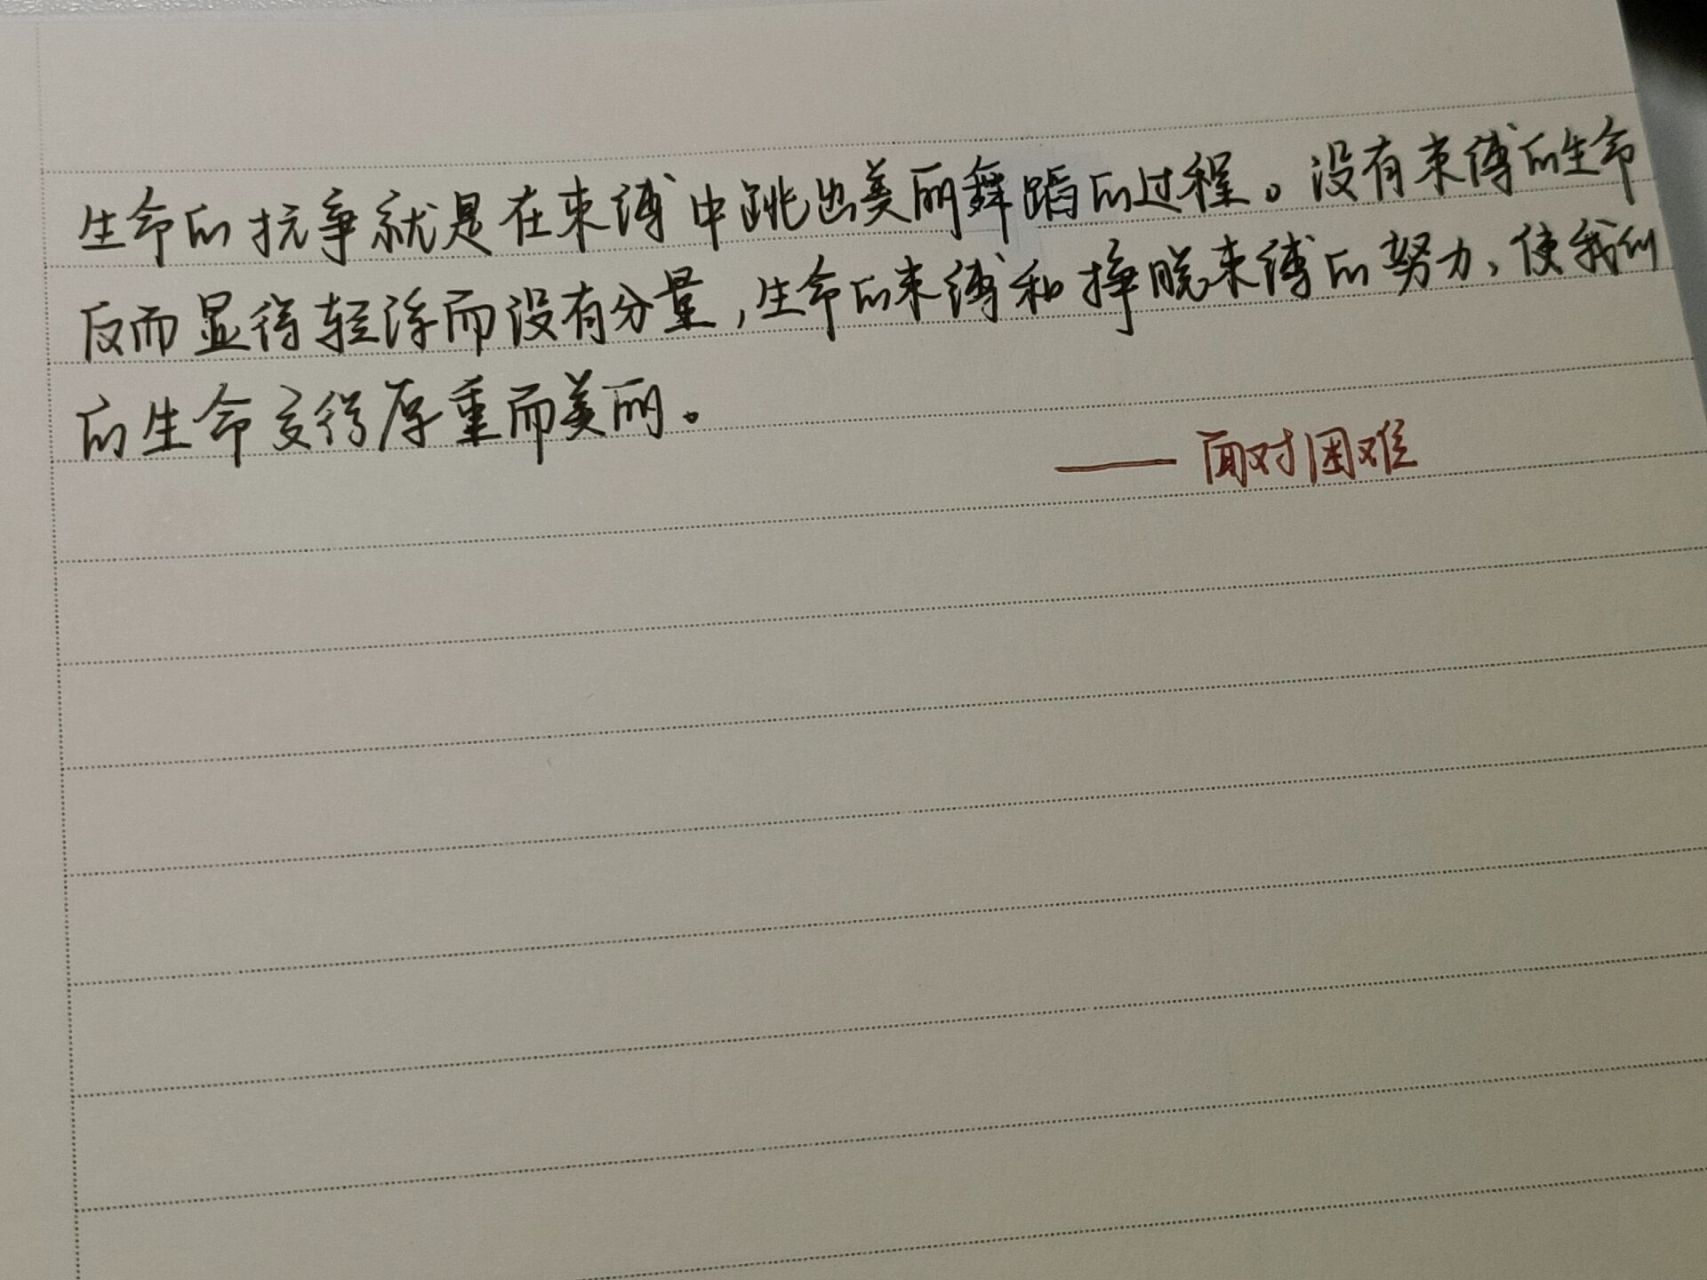 生命的抗争就是在束缚中跳出美丽舞蹈的过程。没有束缚的生命
反而显得轻浮而没有分量,生命的束缚和挣脱束缚的努力,使我们
的生命变得厚重而美丽。
——面对困难